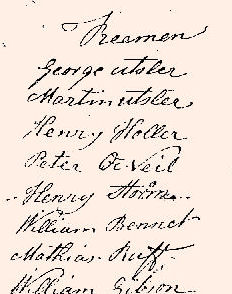 Freemen
George utsler
Martin utsler
Henry Holler
Peter O Neil
Henry Storm
William Bennet
Mathias Ruff
William Gibson